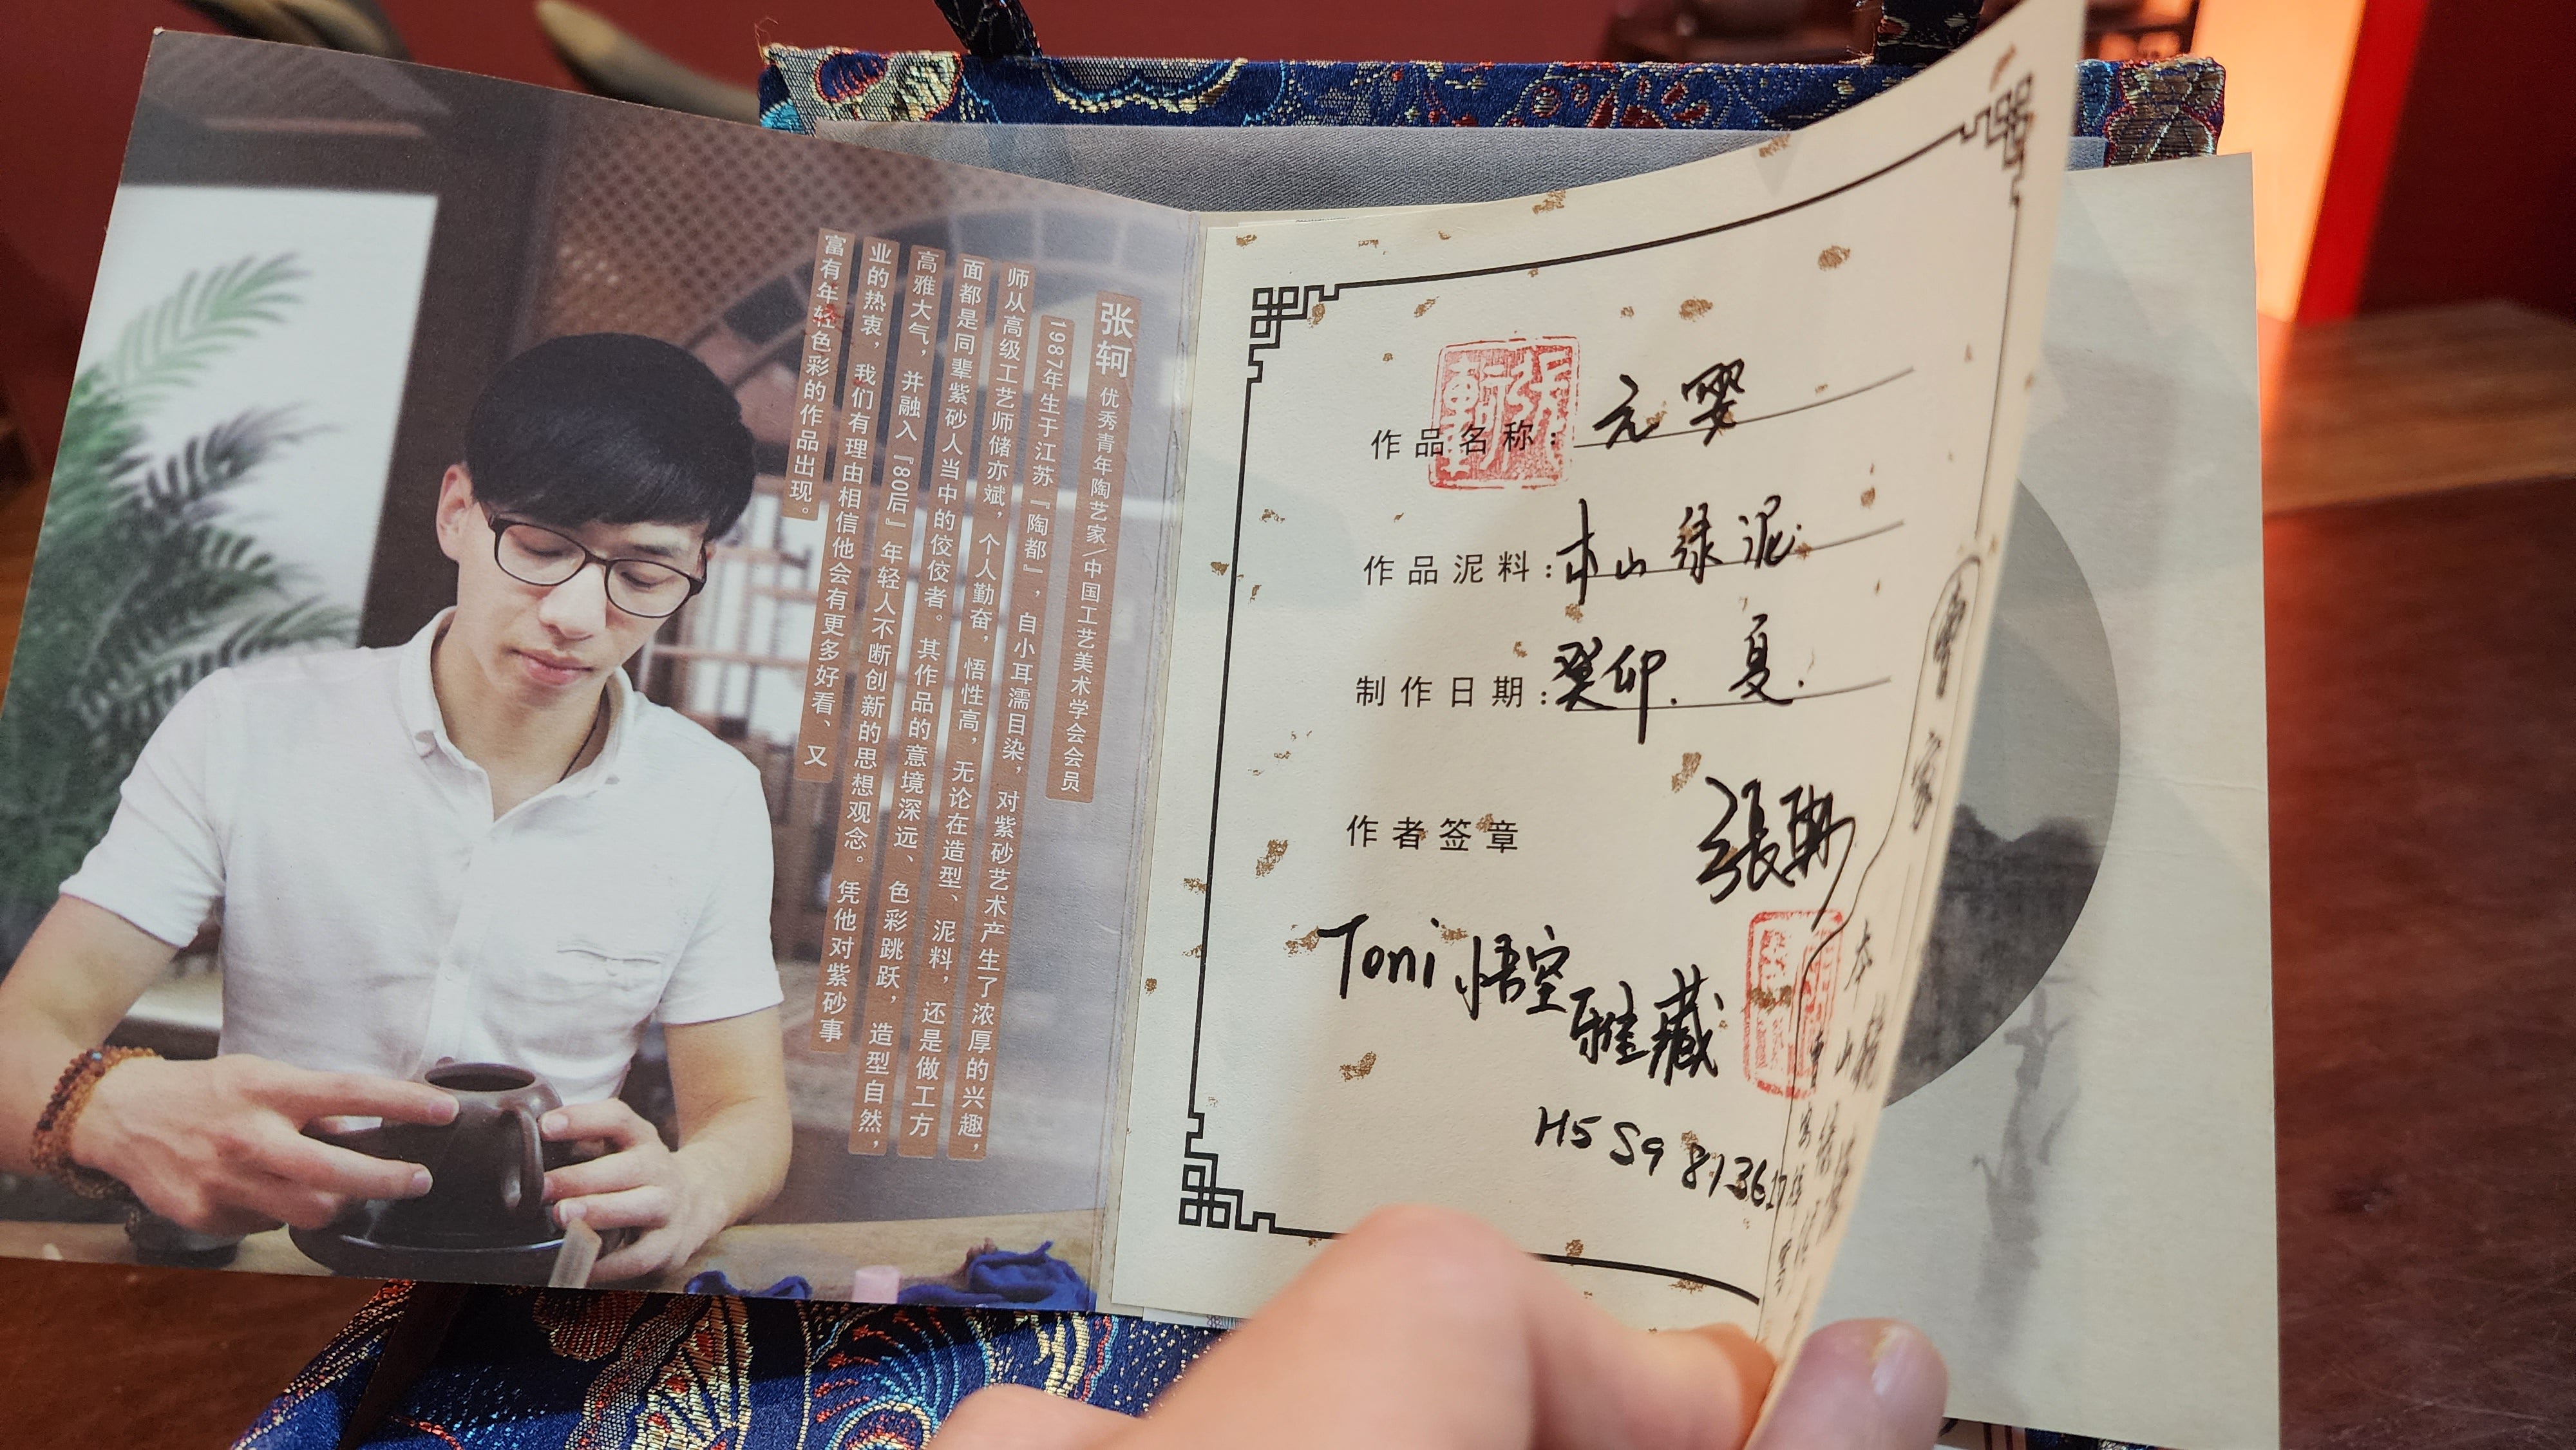 张轲 优秀青年陶艺家/中国工艺美术学会会员
1987年生于江苏『陶都』，自小耳濡目染，对紫砂艺术产生了浓厚的兴趣，
师从高级工艺师储亦斌，个人勤奋，悟性高，无论在造型、泥料，还是做工方
面都是同辈紫砂人当中的佼佼者。其作品的意境深远、色彩跳跃，造型自然，
高雅大气，并融入『80后』年轻人不断创新的思想观念。凭他对紫砂事
业的热衷，我们有理由相信他会有更多好看、又
富有年轻色彩的作品出现。
作品名称：元婴
作品泥料：本山绿泥
制作日期：癸卯.夏.
作者签章
張軻
Toni 悟空
雅藏
H5 S9 81361